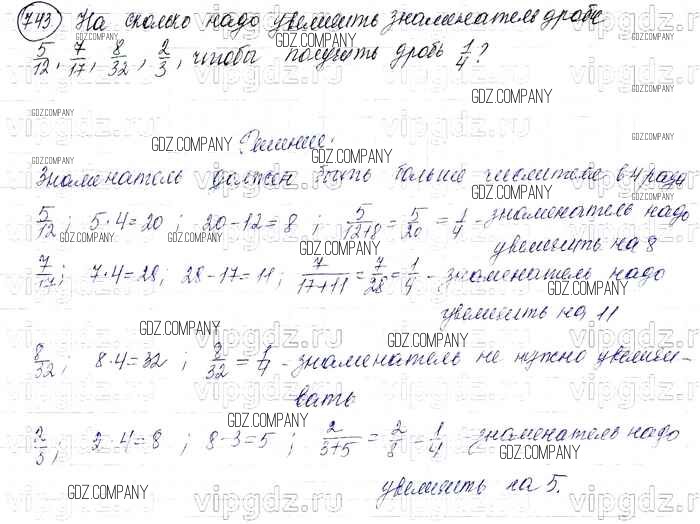 743 На сколько надо увеличить знаменатель дроби
5/12, 7/17, 8/32, 2/3, чтобы получить дробь 1/4?
Решение:
Знаменатель должен быть больше числителя в 4 раза
5/12; 5·4=20; 20-12=8; 5/12+8=5/20=1/4 - знаменатель надо
увеличить на 8
7/17; 7·4=28; 28-17=11; 7/17+11=7/28=1/4 - знаменатель надо
увеличить на 11
8/32; 8·4=32; 8/32=1/4 - знаменатель не нужно увеличи-
вать
2/3; 2·4=8; 8-3=5; 2/3+5=2/8=1/4 знаменатель надо
увеличить на 5.
GDZ.COMPANY
vipgdz.ru